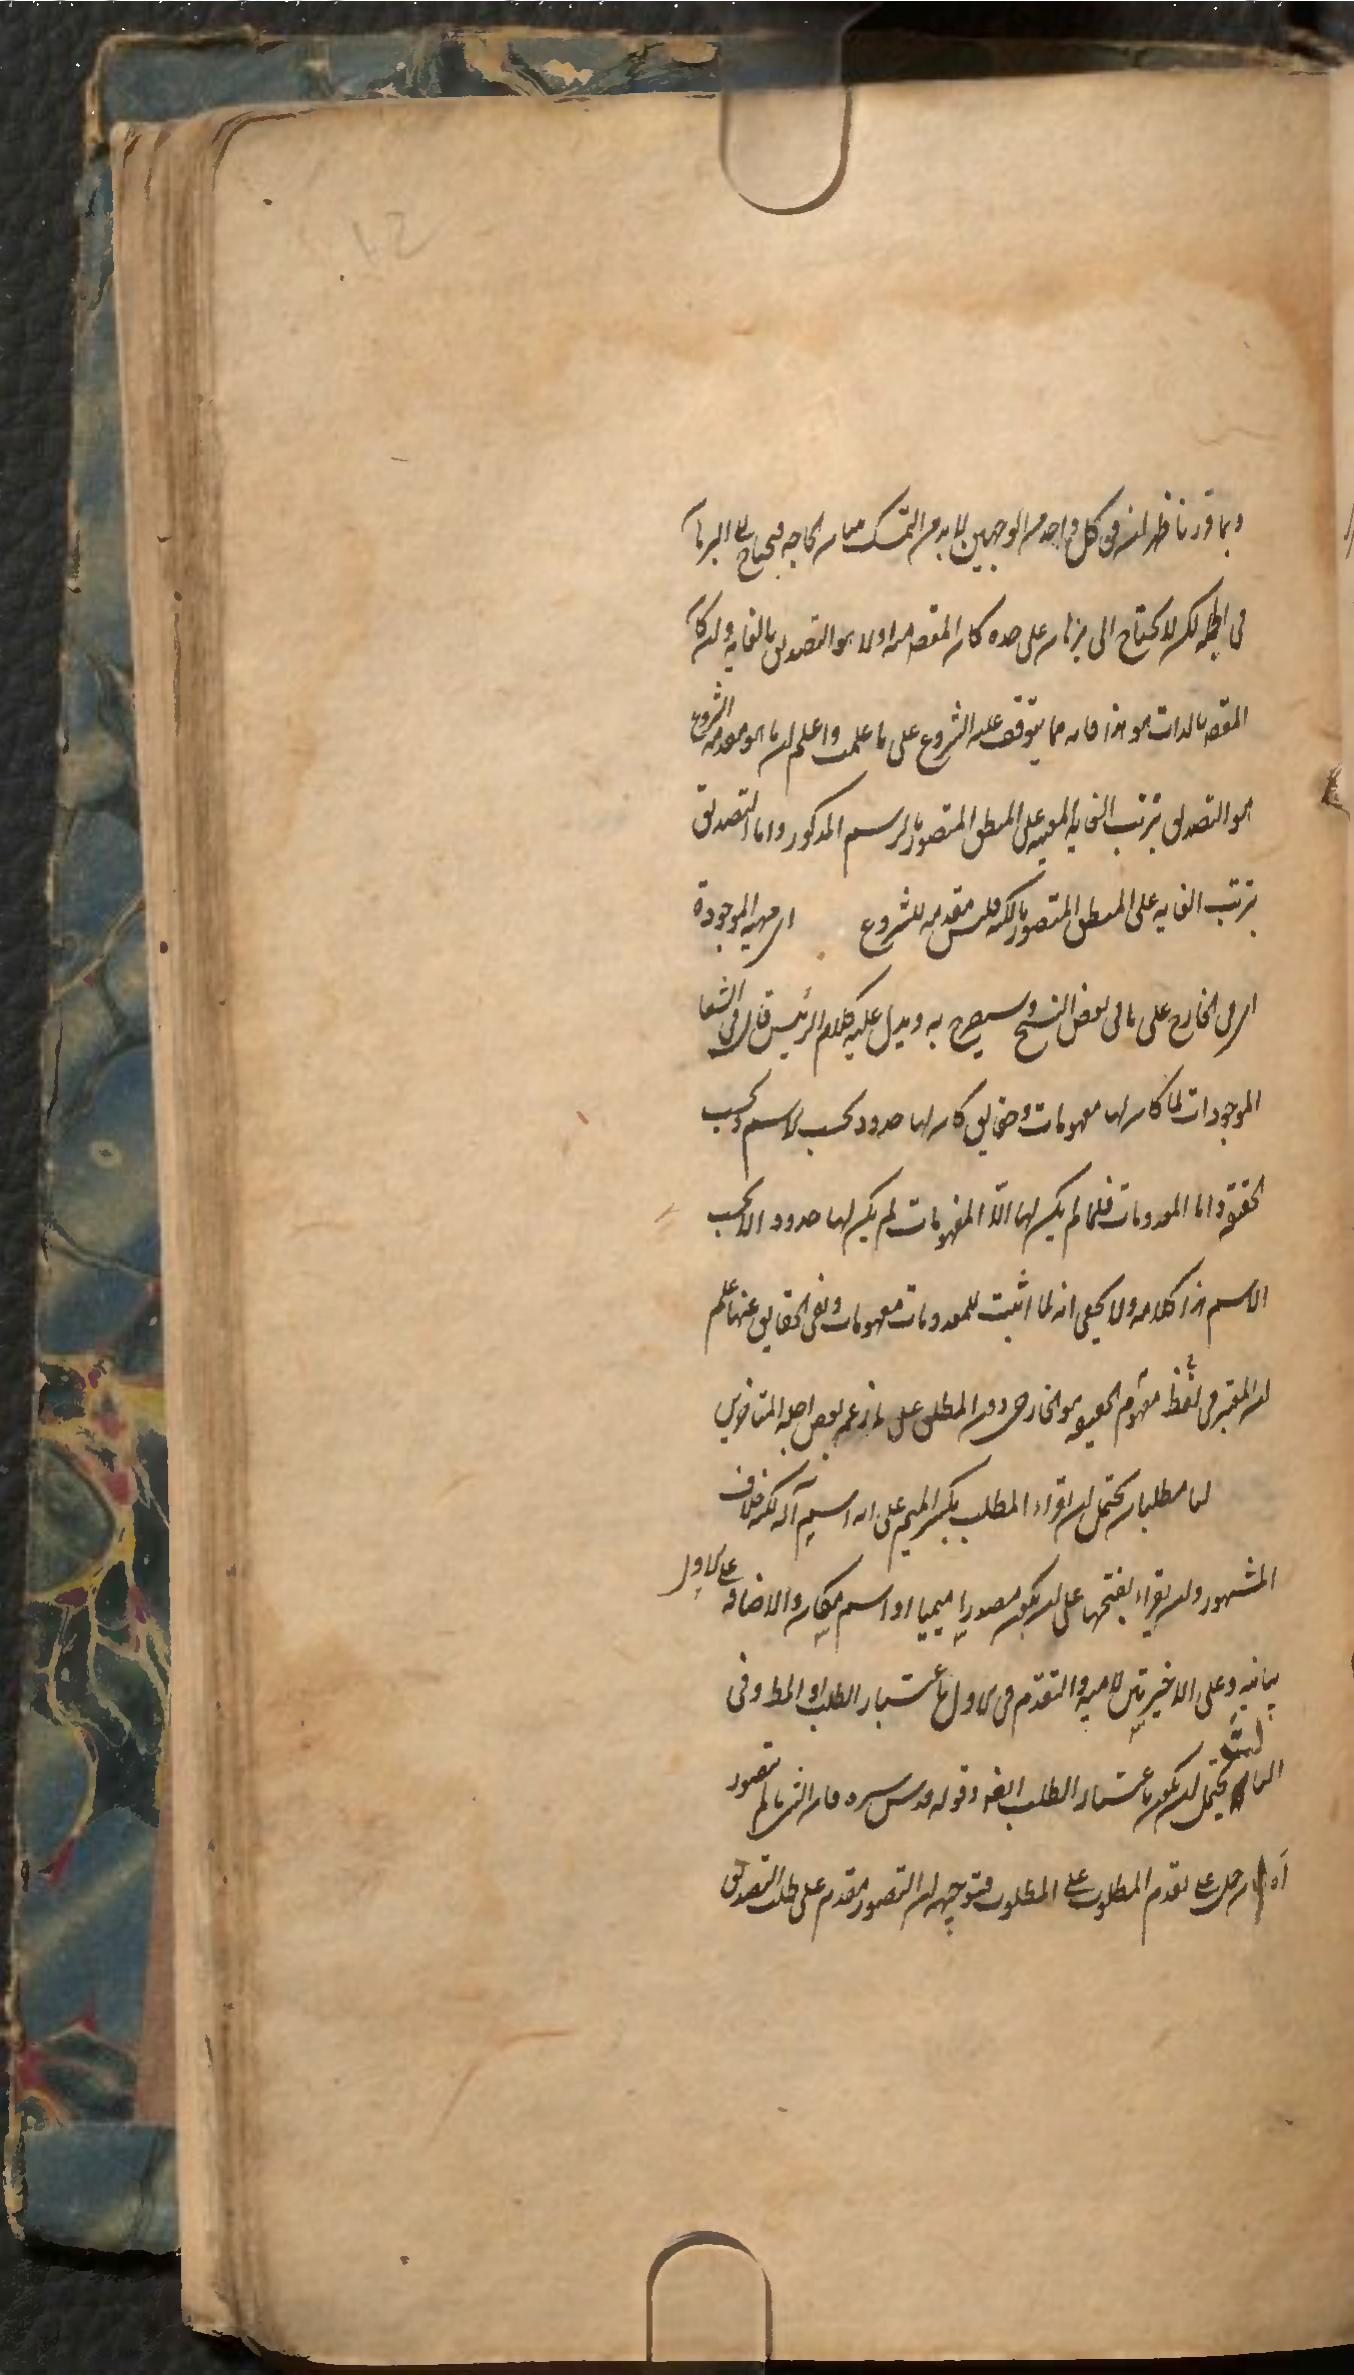 وبما قررنا ظهر انه في كل واحد من الوجهين لابد من التمسك ببيان الحاجة فيحتاج الى البرهان
في الجملة لكن لا يحتاج الى برهان على حده كان المقص منه اولا هو التصديق بالغاية ولو كان
المقص بالذات هو هذا فانه مما يتوقف عليه الشروع على ما علمت واعلم ان ما هو مقدمة الشروع
هو التصديق بترتب الغاية المعينة على المنطق المتصور بالرسم المذكور واما التصديق
بترتب الغاية على المنطق المتصور بالكنه فليس مقدمة للشروع اي مهية الموجودة
اي في الخارج على ما في بعض النسخ وسيصرح به ويدل عليه كلام الرئيس قال في الشفا
الموجودات لما كان لها مفهومات وحقايق كان لها حدود بحسب الاسم وبحسب
الحقيقة واما المعدومات فلما لم يكن لها الا المفهومات لم يكن لها حدود الا بحسب
الاسم هذا كلامه ولا يخفى انه لما اثبت للمعدومات مفهومات ونفى الحقايق عنها علم
ان المعتبر في لفظ مفهوم الحقيقة هو الخارجي دون المطلق على ما زعمه بعض اجلة المتاخرين
لما مطلبان يحتمل ان يقراء المطلب بكسر الميم على انه اسم آلة لكنه خلاف
المشهور وان يقراء بفتحها على ان يكون مصدرا ميميا او اسم مكان والاضافة على الاول
بيانية وعلى الاخيرتين لامية والتقدم في الاول باعتبار الطلب او المط وفي
الثالث يحتمل ان يكون باعتبار الطلب ايضه وقوله قدس سره فان الشئ ما لم يتصور
آه ان حمل على تقدم المطلوب على المطلوب فتوجيهه ان التصور مقدم على طلب التصديق